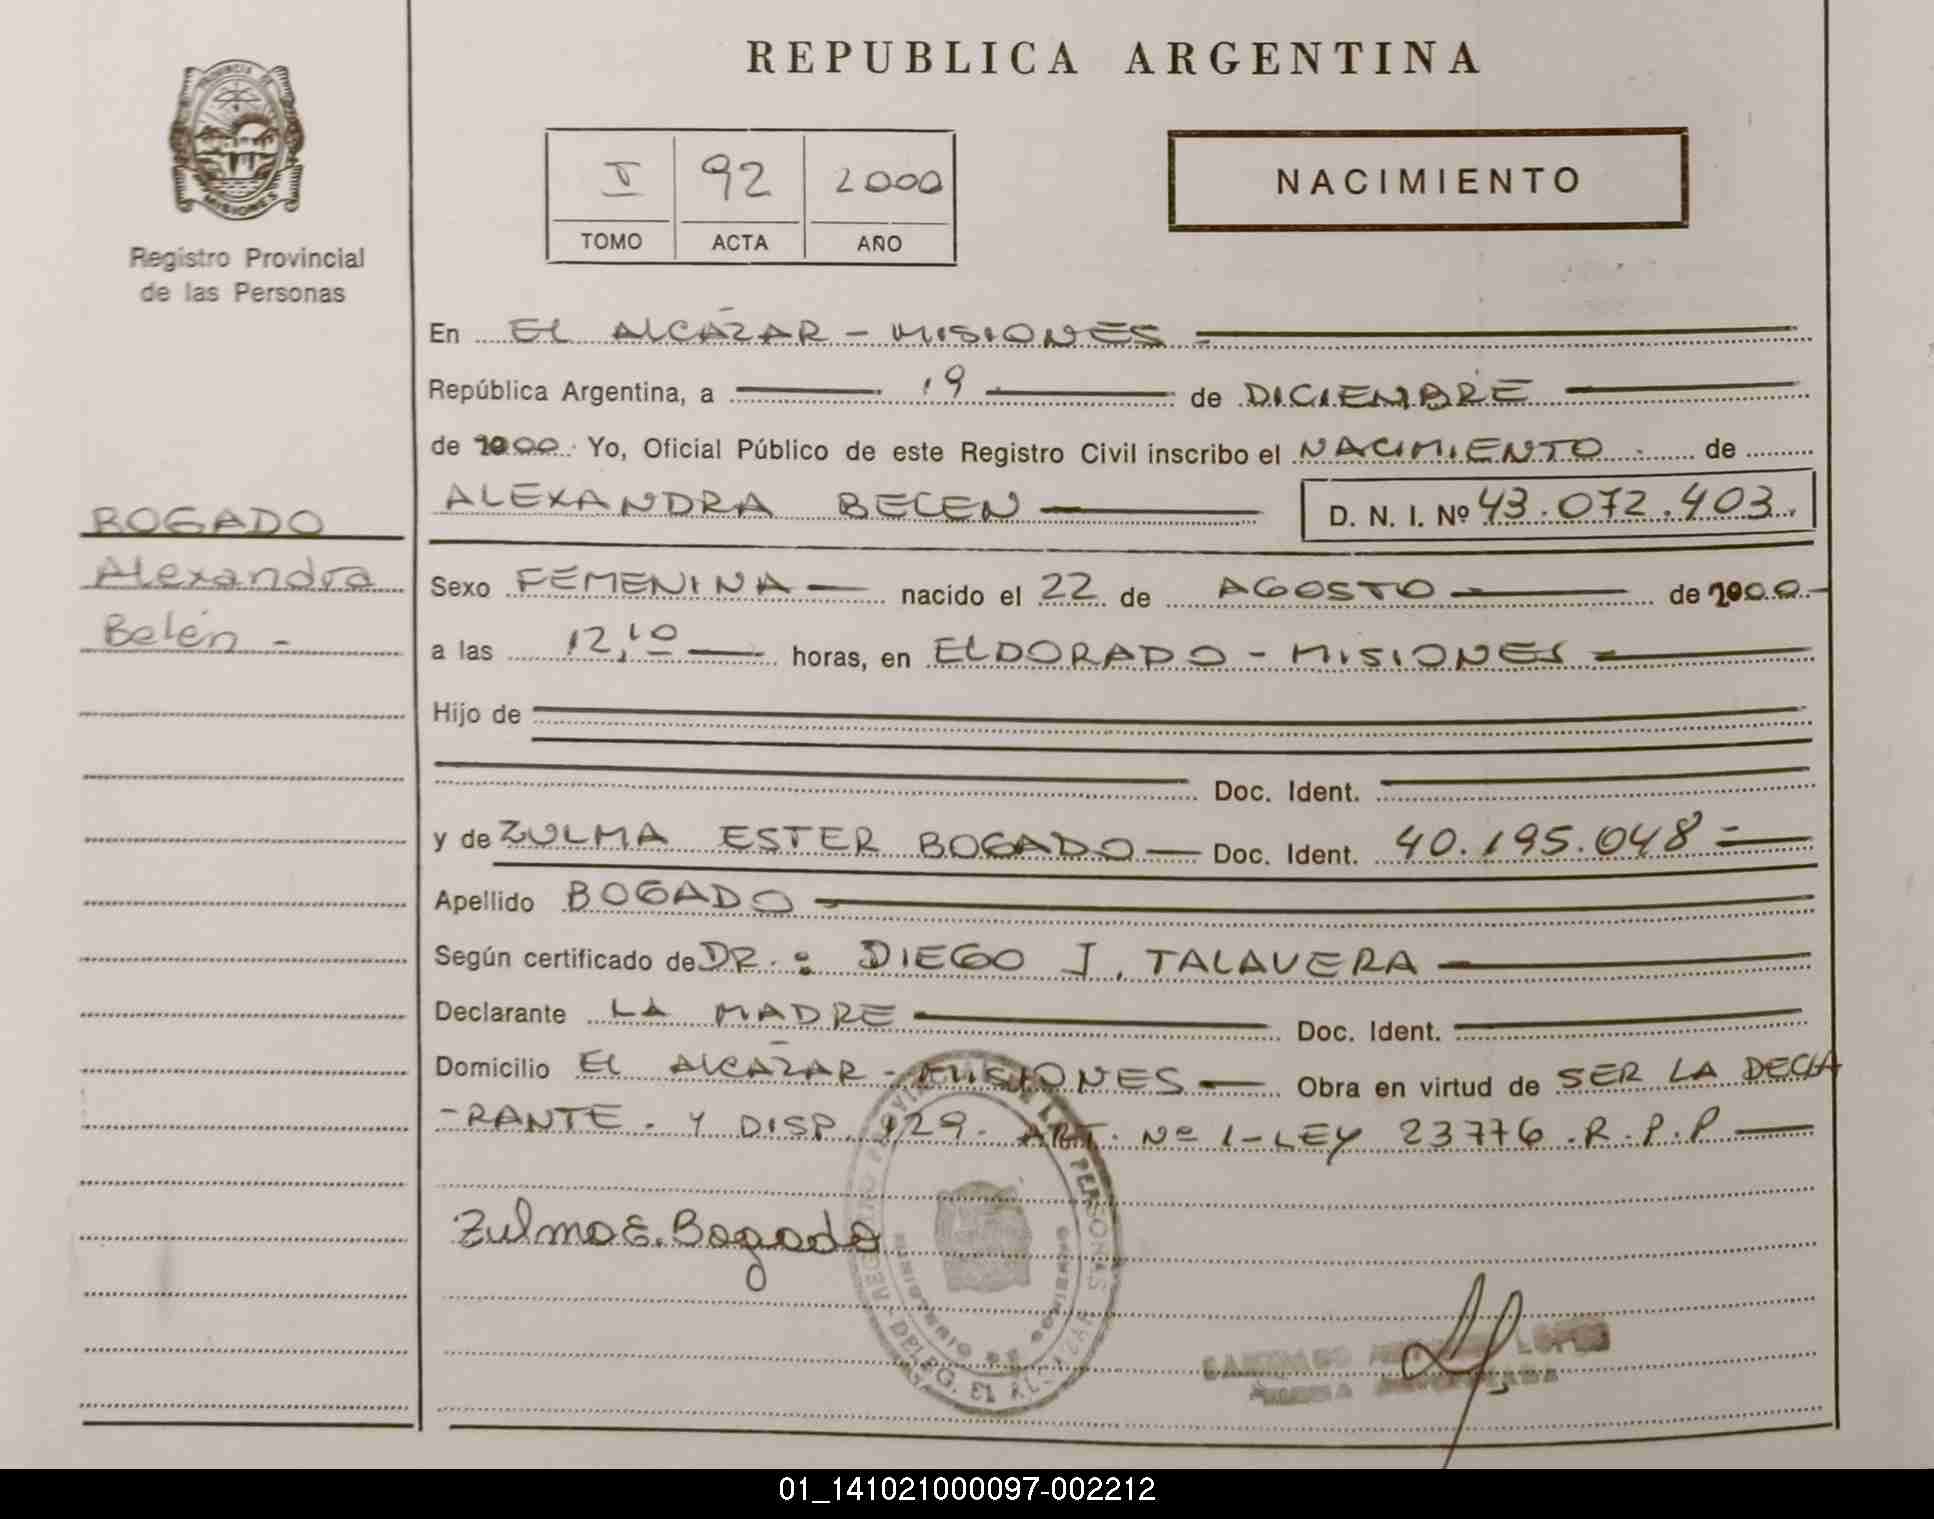 REPUBLICA ARGENTINA
PROVINCIA DE
MISIONES
Registro Provincial
de las Personas
I 92 2000
TOMO ACTA AÑO
NACIMIENTO
BOGADO
Alexandra
Belén -
En EL ALCÁZAR - MISIONES =
República Argentina, a 19 de DICIEMBRE
de 2000. Yo, Oficial Público de este Registro Civil inscribo el NACIMIENTO de
ALEXANDRA BELEN D. N. I. Nº 43.072.403.
Sexo FEMENINA nacido el 22 de AGOSTO de 2000.-
a las 12,10 horas, en ELDORADO - MISIONES
Hijo de
Doc. Ident.
y de ZULMA ESTER BOGADO Doc. Ident. 40.195.048 =
Apellido BOGADO
Según certificado de DR. : DIEGO J. TALAVERA
Declarante LA MADRE Doc. Ident.
Domicilio EL ALCÁZAR - MISIONES Obra en virtud de SER LA DECLA
-RANTE. Y DISP. 129. ART. Nº 1-LEY 23776.R.P.P
Zulma E. Bogado
REGISTRO PROVINCIAL DE LAS PERSONAS
MINISTERIO DE GOBIERNO
DELEG. EL ALCAZAR
LOPEZ
01_141021000097-002212